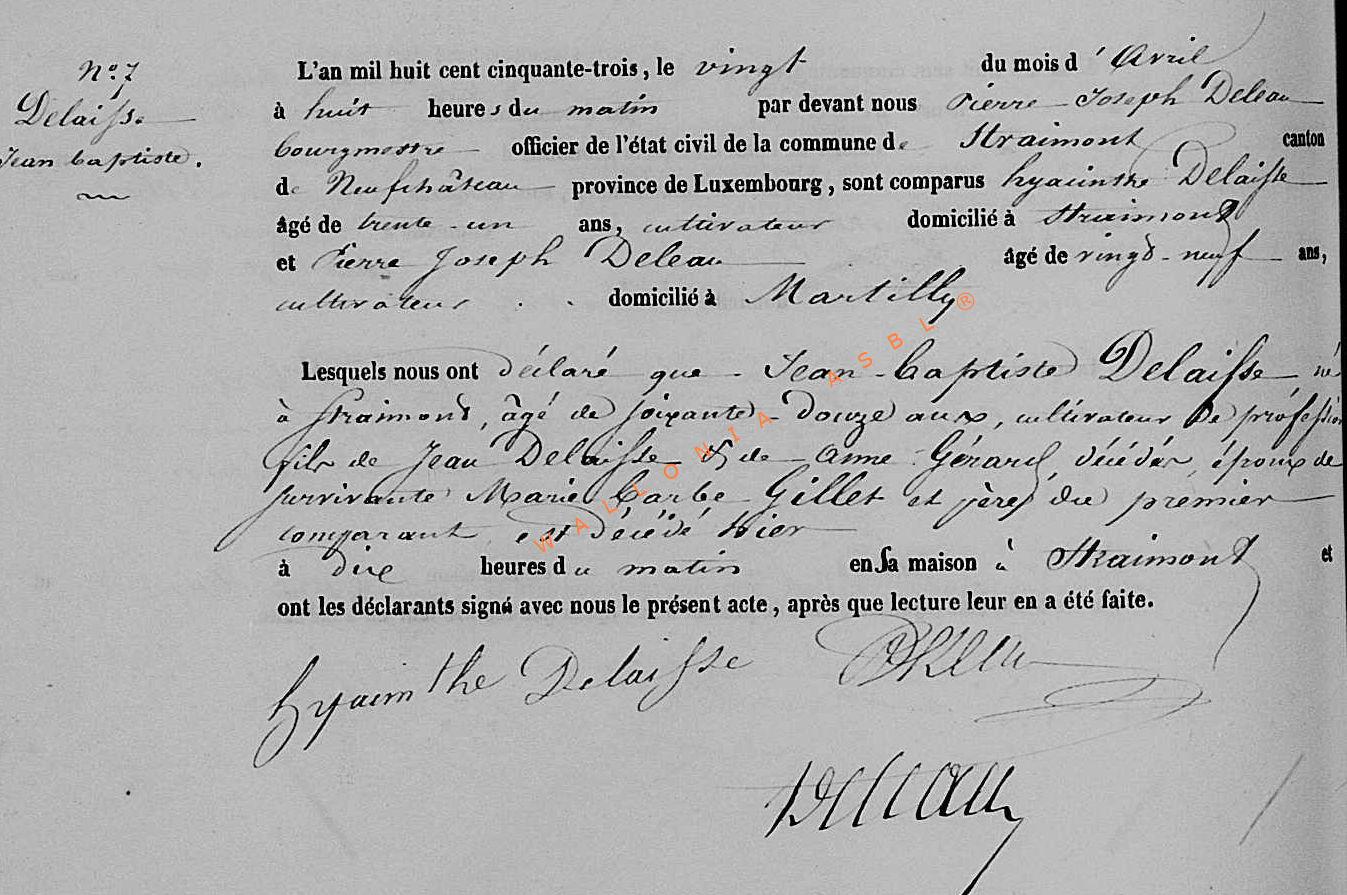 N° 7
Delaisse
Jean baptiste.
L'an mil huit cent cinquante-trois, le vingt du mois d'Avril
à huit heures du matin par devant nous Pierre-Joseph Deleau
bourgmestre officier de l'état civil de la commune de Straimont canton
de Neufchâteau province de Luxembourg, sont comparus hyacinthe Delaisse
âgé de trente-un ans, cultivateur domicilié à Straimont
et Pierre Joseph Deleau âgé de vingt-neuf ans,
cultivateur domicilié à Martilly
Lesquels nous ont déclaré que Jean-baptiste Delaisse né
à Straimont, âgé de soixante-douze ans, cultivateur de profession
fils de Jean Delaisse & de Anne Gérard, décédés, époux de
survivante Marie barbe Gillet et père du premier
comparant, est décédé hier
à dix heures du matin en sa maison à Straimont et
ont les déclarants signé avec nous le présent acte, après que lecture leur en a été faite.
hyacinthe Delaisse
Deleau
WALLONIA ASBL ®